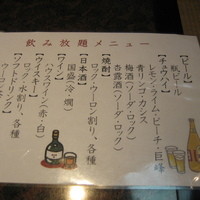 飲み放題メニュー
【ビール】
瓶ビール
【チュウハイ】
レモン・ライム・ピーチ・巨峰
青リンゴ・カシス
梅酒(ソーダ・ロック)
杏露酒(ソーダ・ロック)
【焼酎】
ロック・ウーロン割り、各種
【日本酒】
国盛(冷・燗)
【ワイン】
ハウスワイン(赤・白)
【ウイスキー】
ロック・水割り、各種
【ソフトドリンク】
ウーロン